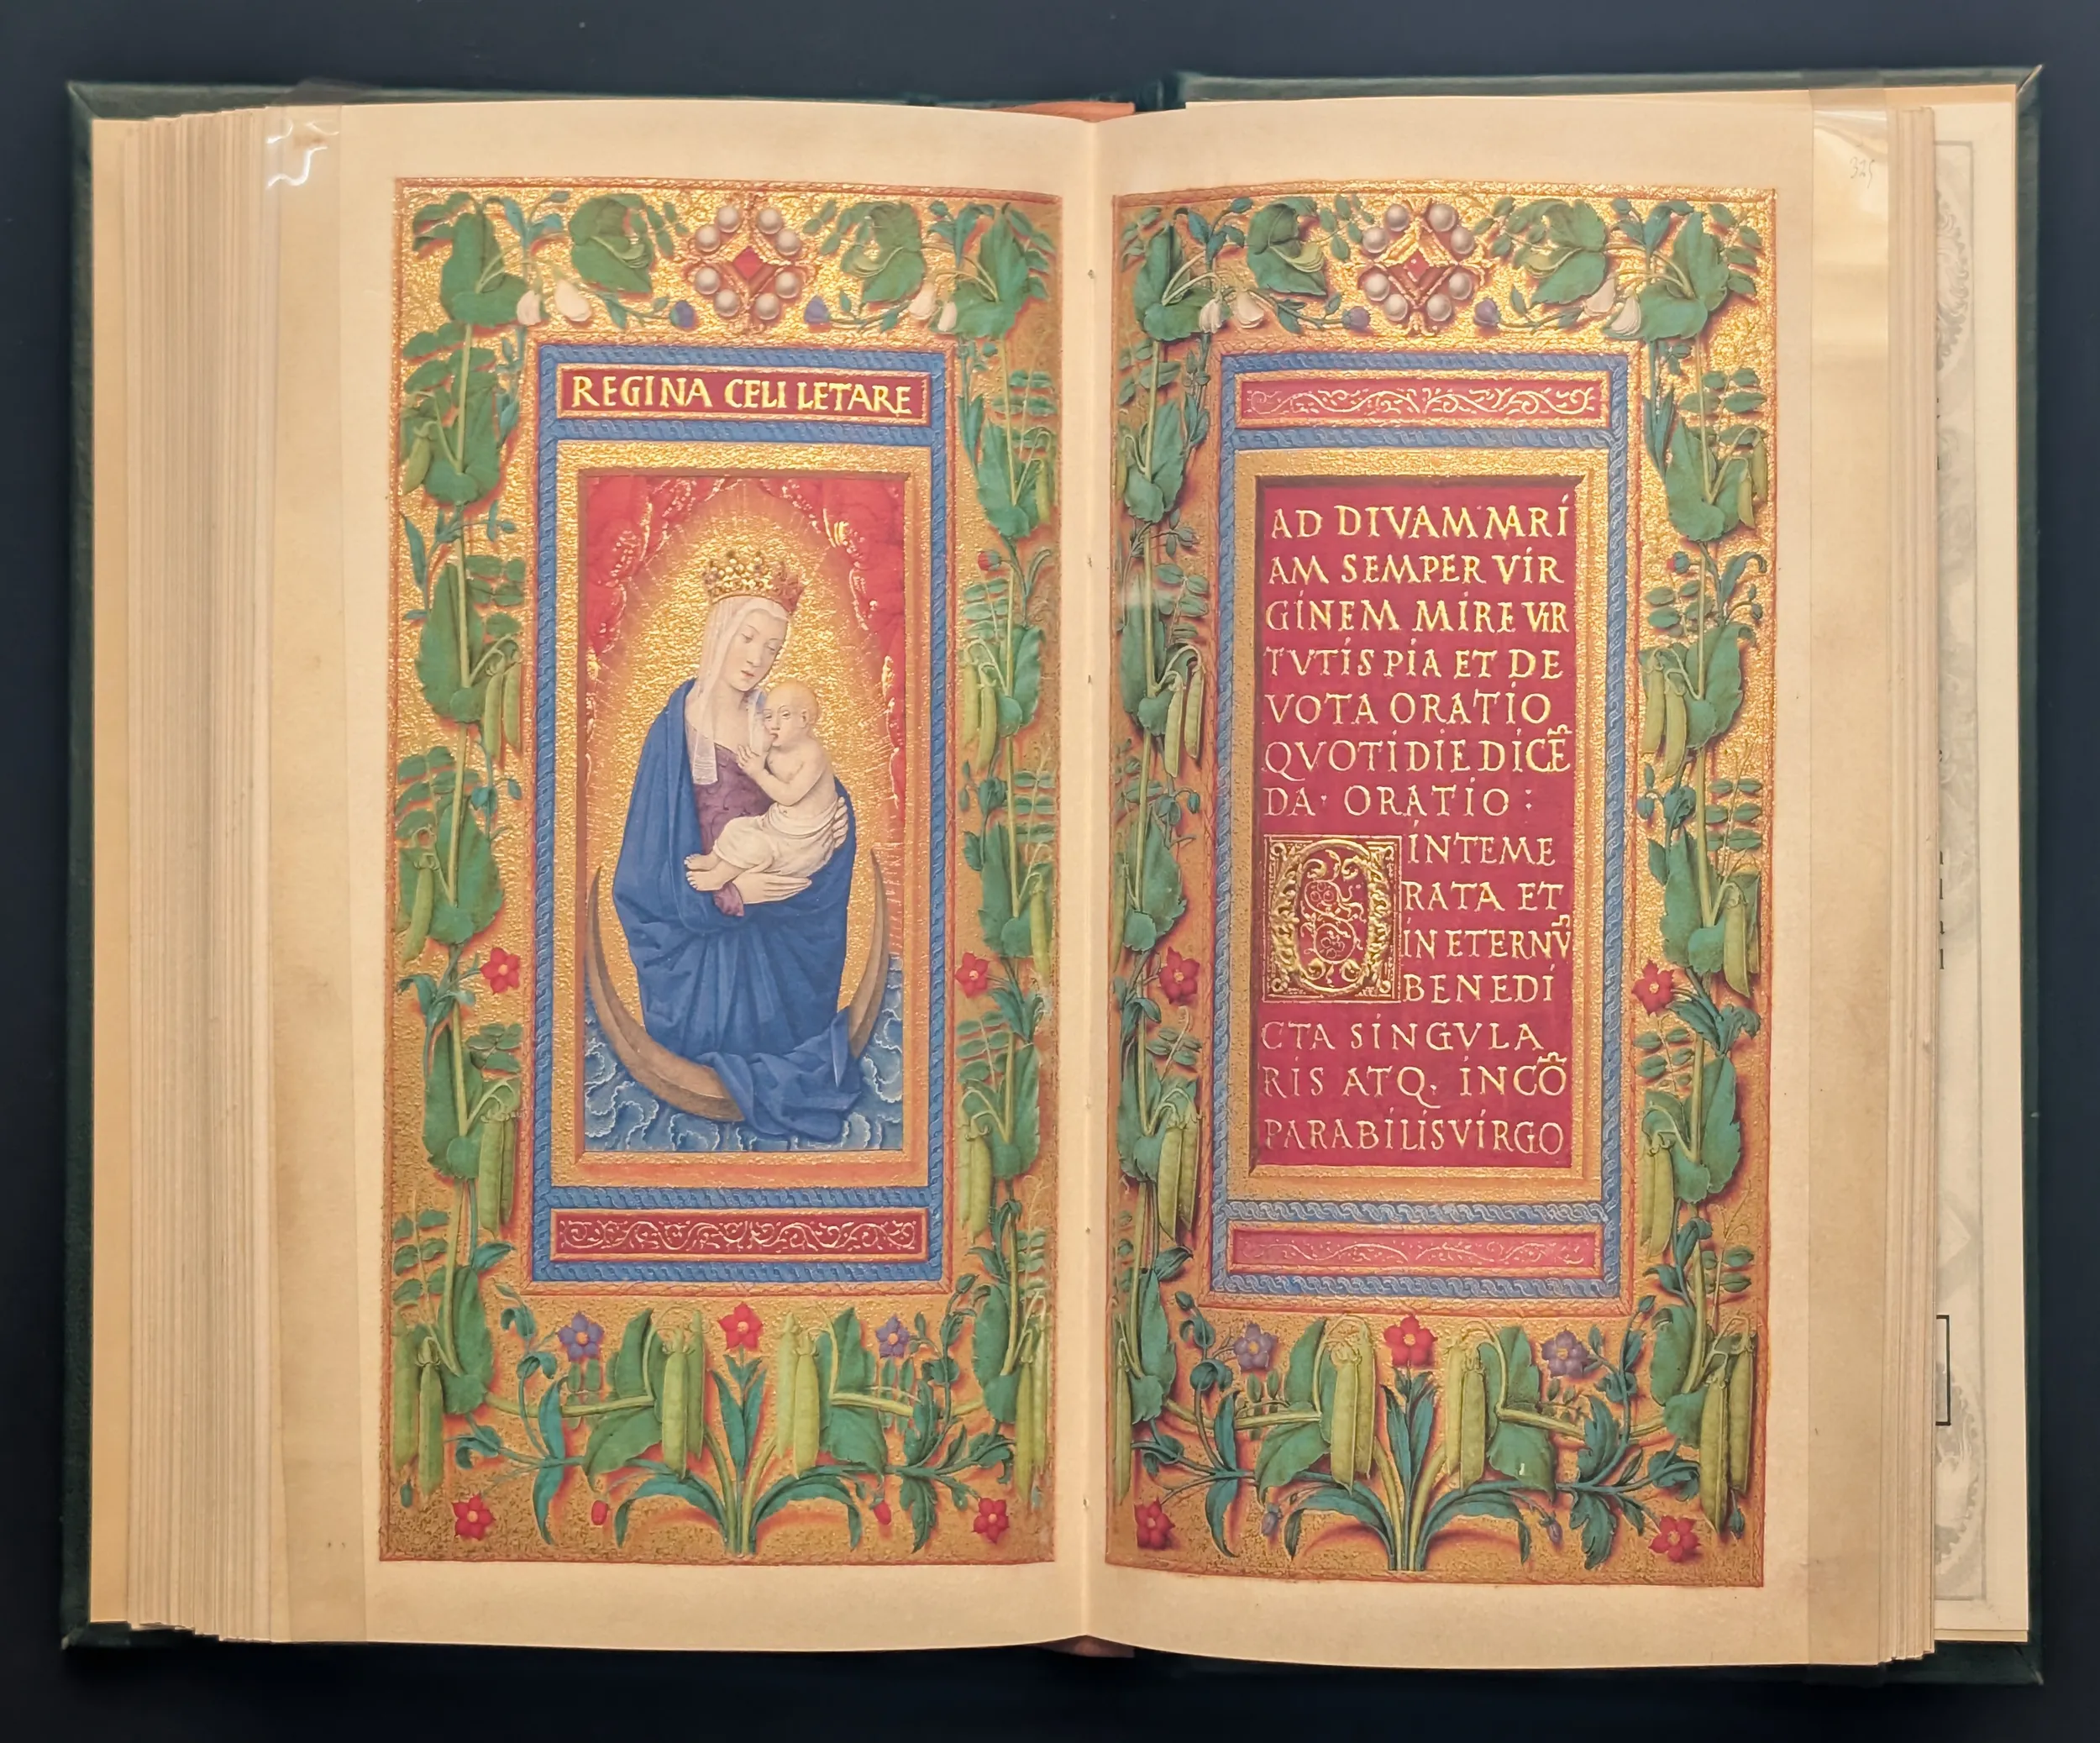 REGINA CELI LETARE
325
AD DIVAM MARI
AM SEMPER VIR
GINEM MIRE VIR
TVTIS PIA ET DE
VOTA ORATIO
QVOTIDIE DICẼ
DA· ORATIO :
O INTEME
RATA ET
IN ETERNV̄
BENEDI
CTA SINGVLA
RIS ATQ. INCÕ
PARABILIS VIRGO